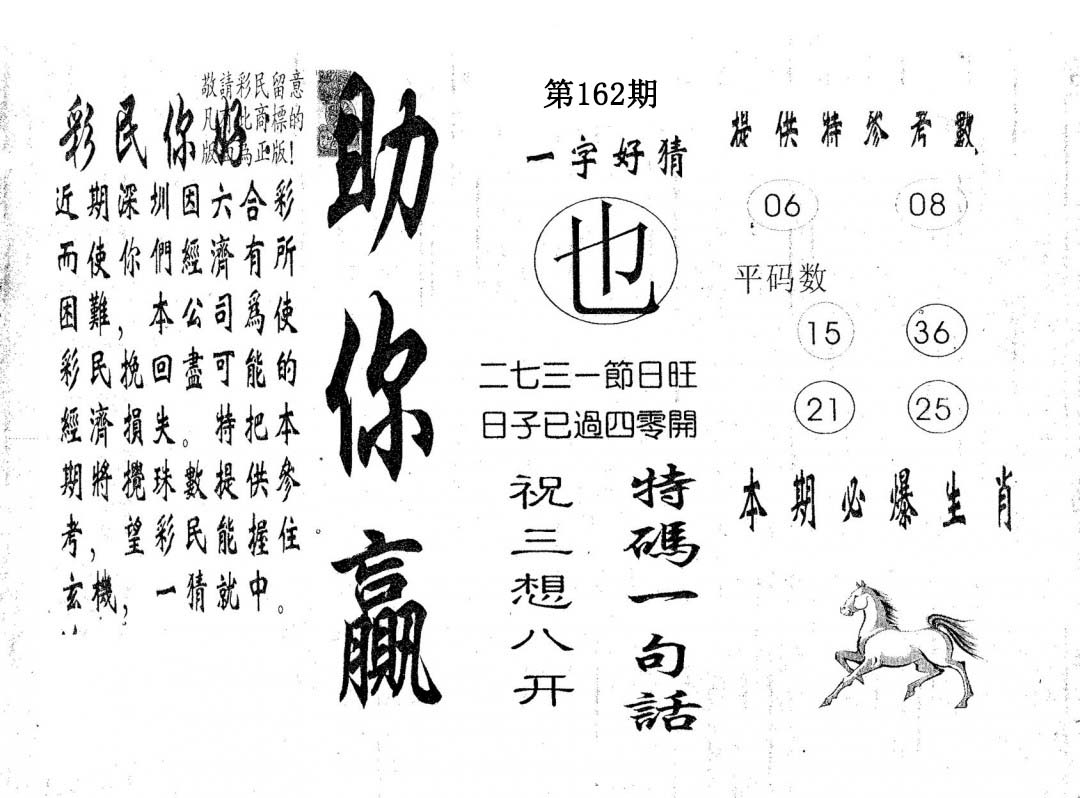 敬請彩民留意
凡有此商標的
版面為正版!
彩民你好
近期深圳因六合彩
而使你們經濟有所
困難，本公司爲使
彩民挽回盡可能的
經濟損失。特把本
期將攪珠數提供參
考，望彩民能握住
玄機，一猜就中。
助你贏
第162期
一字好猜
也
二七三一節日旺
日子已過四零開
特碼一句話
祝三想八开
提供特參考數
06 08
平码数
15 36
21 25
本期必爆生肖